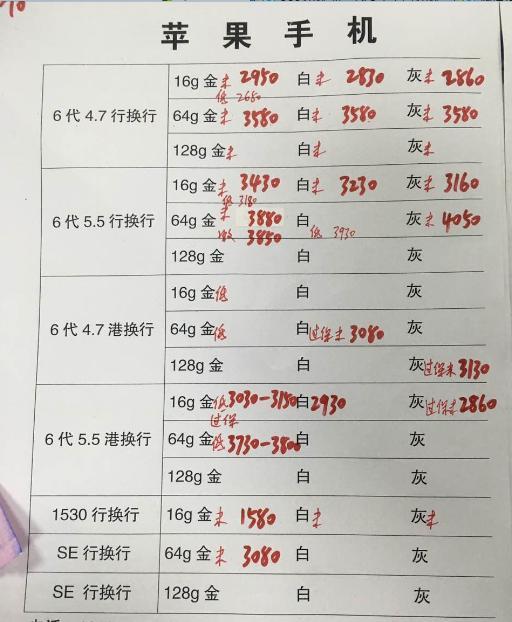 10
苹果手机
6代4.7行换行 16g金未2950 白未 2830 灰未2860
低 2680
64g金未 3580 白未 3580 灰未3580
128g金未 白未 灰未
6代5.5行换行 16g金未 3430 白未 3230 灰未 3160
低 3180
64g金 未 3880 白 灰未4050
3850 低 3930
128g金 白 灰
6代4.7港换行 16g金低 白 灰
64g金低 白过保未3080 灰
128g金 白 灰过保未3130
6代5.5港换行 16g金低3030-3150白2930 灰过保未2860
过保
64g金低3730-3800白 灰
128g金 白 灰
1530行换行 16g金未 1580 白未 灰未
SE行换行 64g金未 3080 白 灰
SE 行换行 128g金 白 灰